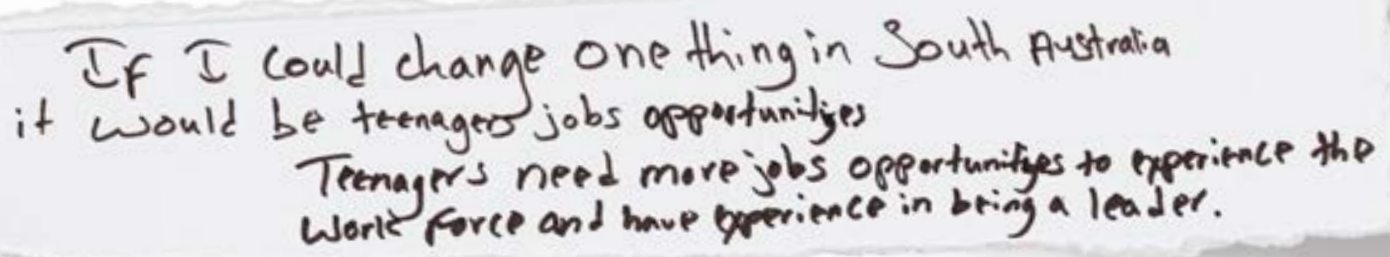 If I could change one thing in South Australia
it would be teenagers jobs opportunities
Teenagers need more jobs opportunities to experience the
work force and have experience in being a leader.